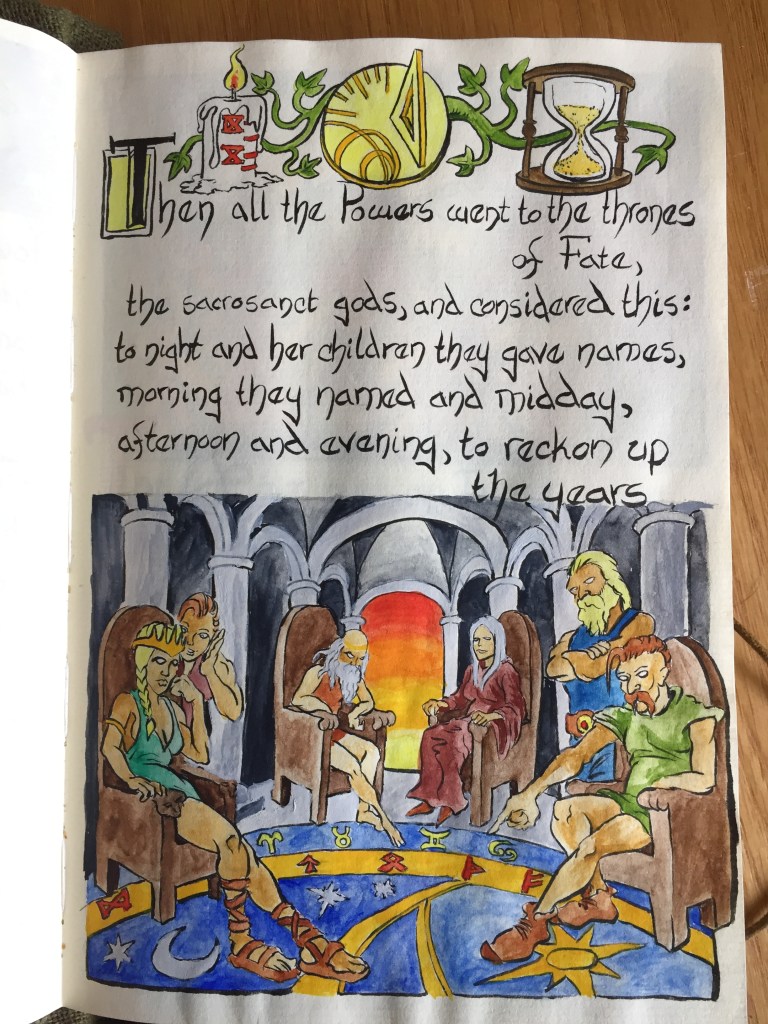 Then all the Powers went to the thrones
of Fate,
the sacrosanct gods, and considered this:
to night and her children they gave names,
morning they named and midday,
afternoon and evening, to reckon up
the years
♈ ♉ ♊ ♋
ᛞ ᛏ ᛟ ᚦ ᚠ